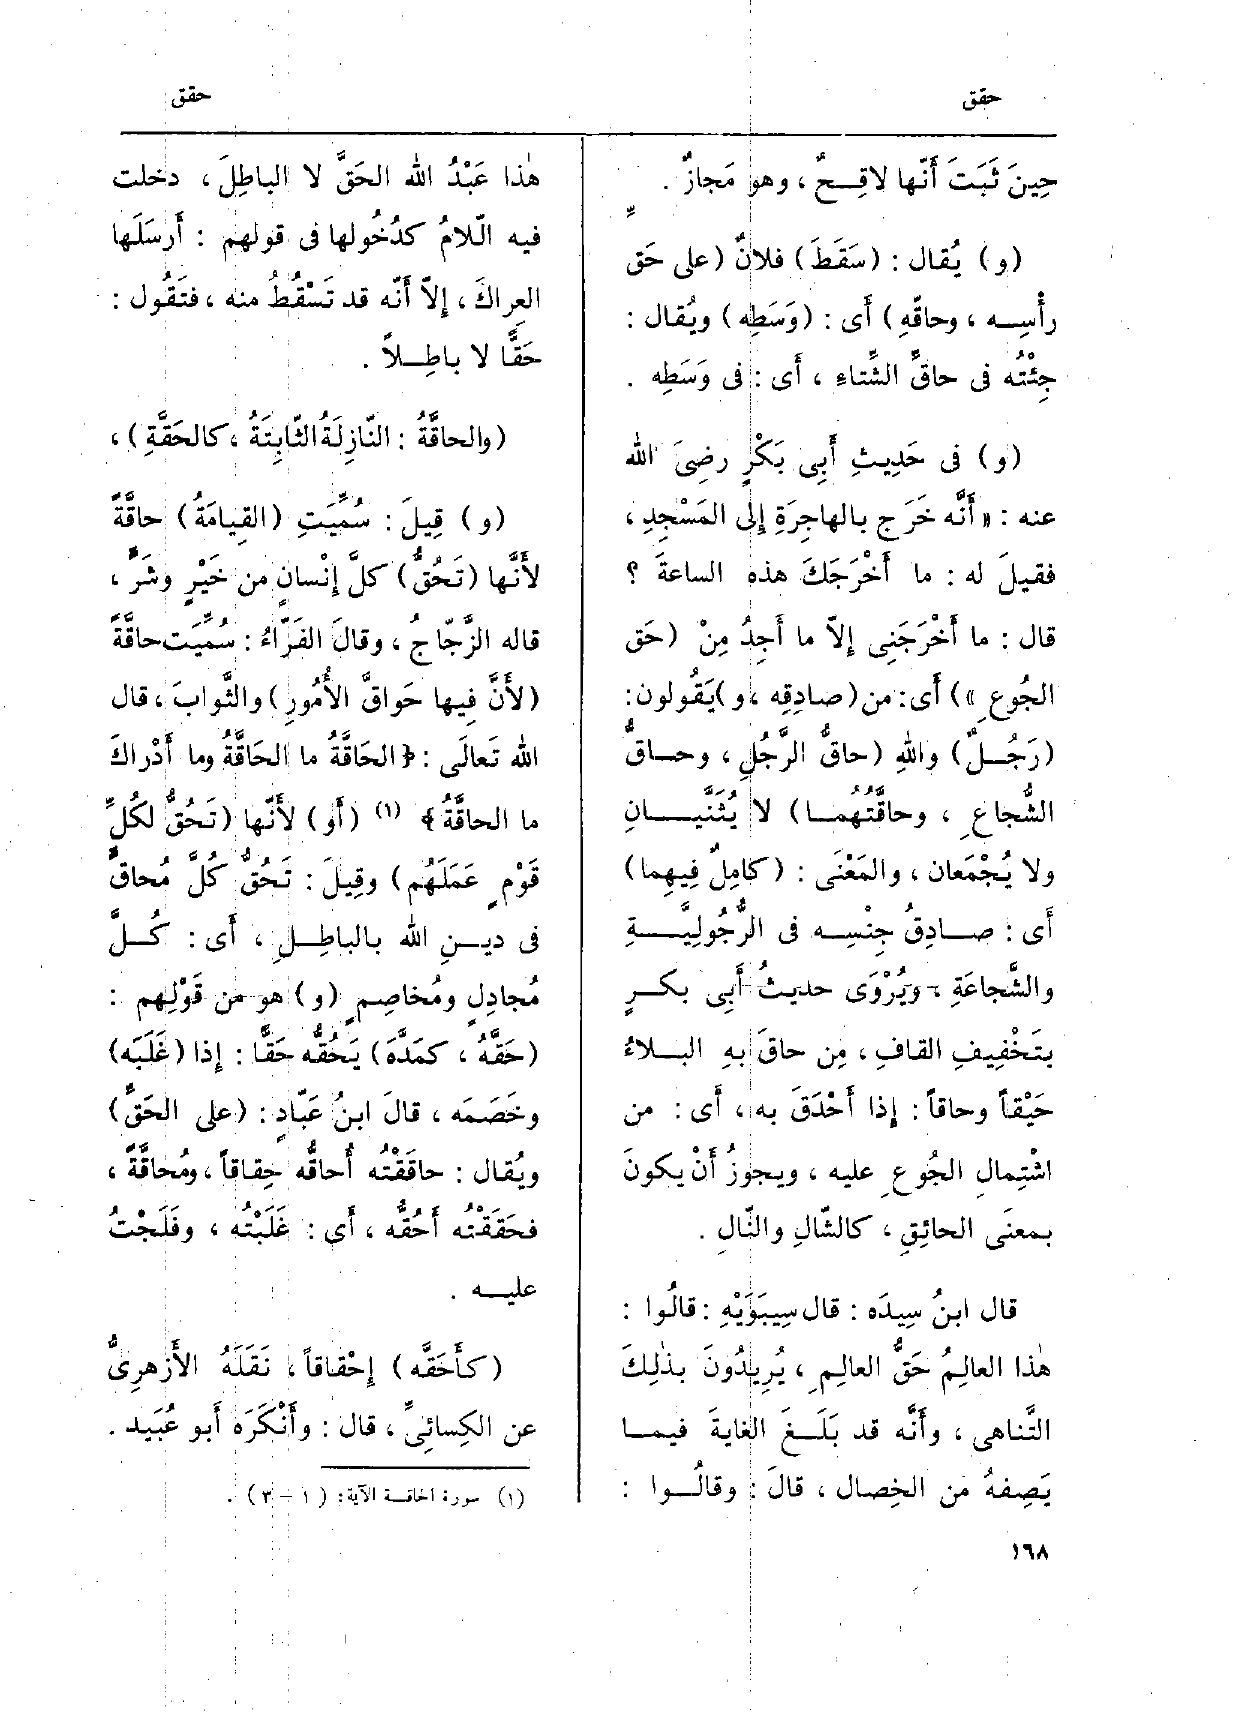 حقق
حقق
حِينَ ثَبَتَ أَنّها لاقِـحٌ ، وهو مَجازٌ .
(و) يُقال : (سَقَطَ) فلانٌ (على حَقِّ
رأْسِـه ، وحاقِّهِ) أَى : (وَسَطِه) ويُقال :
جِئْتُه فى حاقِّ الشِّتاءِ ، أَى : فى وَسَطِه .
(و) فى حَدِيثِ أَبِى بَكْرٍ رضِىَ الله
عنه : « أَنَّه خَرَج بالهاجِرَةِ إِلى المَسْجِدِ ،
فقيلَ له : ما أَخْرَجَكَ هذه الساعةَ ؟
قال : ما أَخْرَجَنِى إِلاّ ما أَجِدُ مِنْ (حَقِّ
الجُوعِ ») أَى: من (صادِقِه ، و)يَقُولون:
(رَجُـلٌ) واللهِ (حاقُّ الرَّجُلِ ، وحـاقُّ
الشُّجاعِ ، وحاقَّتُهمـا) لا يُثَنَّيـــانِ
ولا يُجْمَعان ، والمَعْنَى : (كامِلٌ فِيهِما)
أَى : صــادِقُ جِنْسِـه فى الرُّجُولِيَّـــةِ
والشَّجاعَةِ ، ويُرْوَى حديثُ أَبِى بكـرٍ
بتَخْفِيفِ القاف ، مِن حاقَ بهِ البـلاءُ
حَيْقاً وحاقاً : إِذا أَحْدَقَ به ، أَى : من
اشْتِمالِ الجُوعِ عليه ، ويجوزُ أَنْ يكونَ
بمعنَى الحائِقِ ، كالشّالِ والنّالِ .
قال ابنُ سِيدَه : قال سِيبَوَيْهِ : قالُوا :
هٰذا العالِمُ حَقُّ العالِمِ ، يُرِيدُونَ بذٰلِكَ
التَّناهى ، وأَنَّه قد بَلَـغَ الغايةَ فيمـا
يَصِفهُ من الخِصال ، قالَ : وقالُـوا :
هٰذا عَبْدُ الله الحَقَّ لا الباطِلَ ، دخلت
فيه الّلامُ كدُخُولها فى قولهم : أَرسَلَها
العِراكَ ، إِلاّ أَنّه قد تَسْقُطُ منه ، فتقُول :
حَقًّا لا باطِـلاً .
(والحاقَّةُ : النّازِلَةُ الثّابِتَةُ ، كالحَقَّةِ) ،
(و) قِيلَ : سُمِّيَتِ (القِيامَةُ) حاقَّةً
لأَنَّها (تَحُقُّ) كلَّ إِنْسانٍ من خَيْرٍ وشَرٍّ ،
قاله الزَّجّاجُ ، وقالَ الفَرّاءُ : سُمِّيَت حاقَّةً
(لأَنَّ فِيها حَواقَّ الأُمُورِ) والثَّوابَ ، قال
الله تَعالَى : ﴿ الحَاقَّةُ ما الحَاقَّةُ وما أَدْراكَ
ما الحاقَّةُ ﴾ (١) (أو) لأَنّها (تَحُقُّ لكُلِّ
قَوْمٍ عَمَلَهُم) وقِيلَ : تَحُقُّ كُلَّ مُحاقٍّ
فى ديـنِ الله بالباطِـلِ ، أَى : كُـلَّ
مُجادِلٍ ومُخاصِمٍ (و) هو من قَوْلِهم :
(حَقَّهُ ، كمَدَّهَ) يَحُقُّه حَقًّا : إِذا (غَلَبَه)
وخَصَمَه ، قالَ ابنُ عَبّادٍ : (على الحَقِّ)
ويُقال : حاقَقْتُه أُحاقُّه حِقاقاً ، ومُحاقَّةً ،
فحَقَقْتُه أَحُقُّه ، أَى : غَلَبْتُه ، وفَلَجْتُ
عليـه .
(كأَحَقَّه) إِحْقاقاً ، نَقَلَهُ الأَزهرِىُّ
عن الكِسائِىِّ ، قال : وأَنْكَرَه أبو عُبَيد .
(١) سورة الحاقـة الآية : ( ١ – ٣ ) .
١٦٨